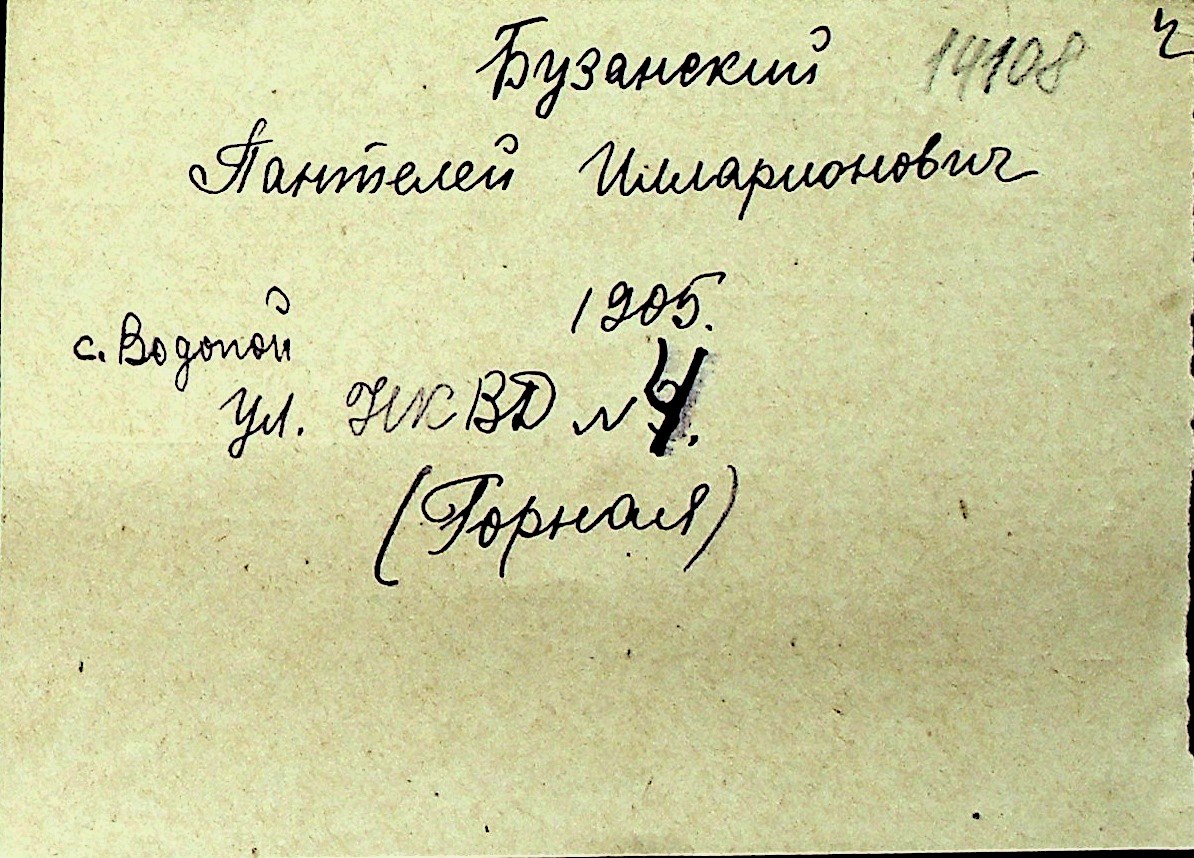 Бузанский 14108
Пантелей Илларионович
1905.
с. Водопой
ул. НКВД №4.
(Горная)